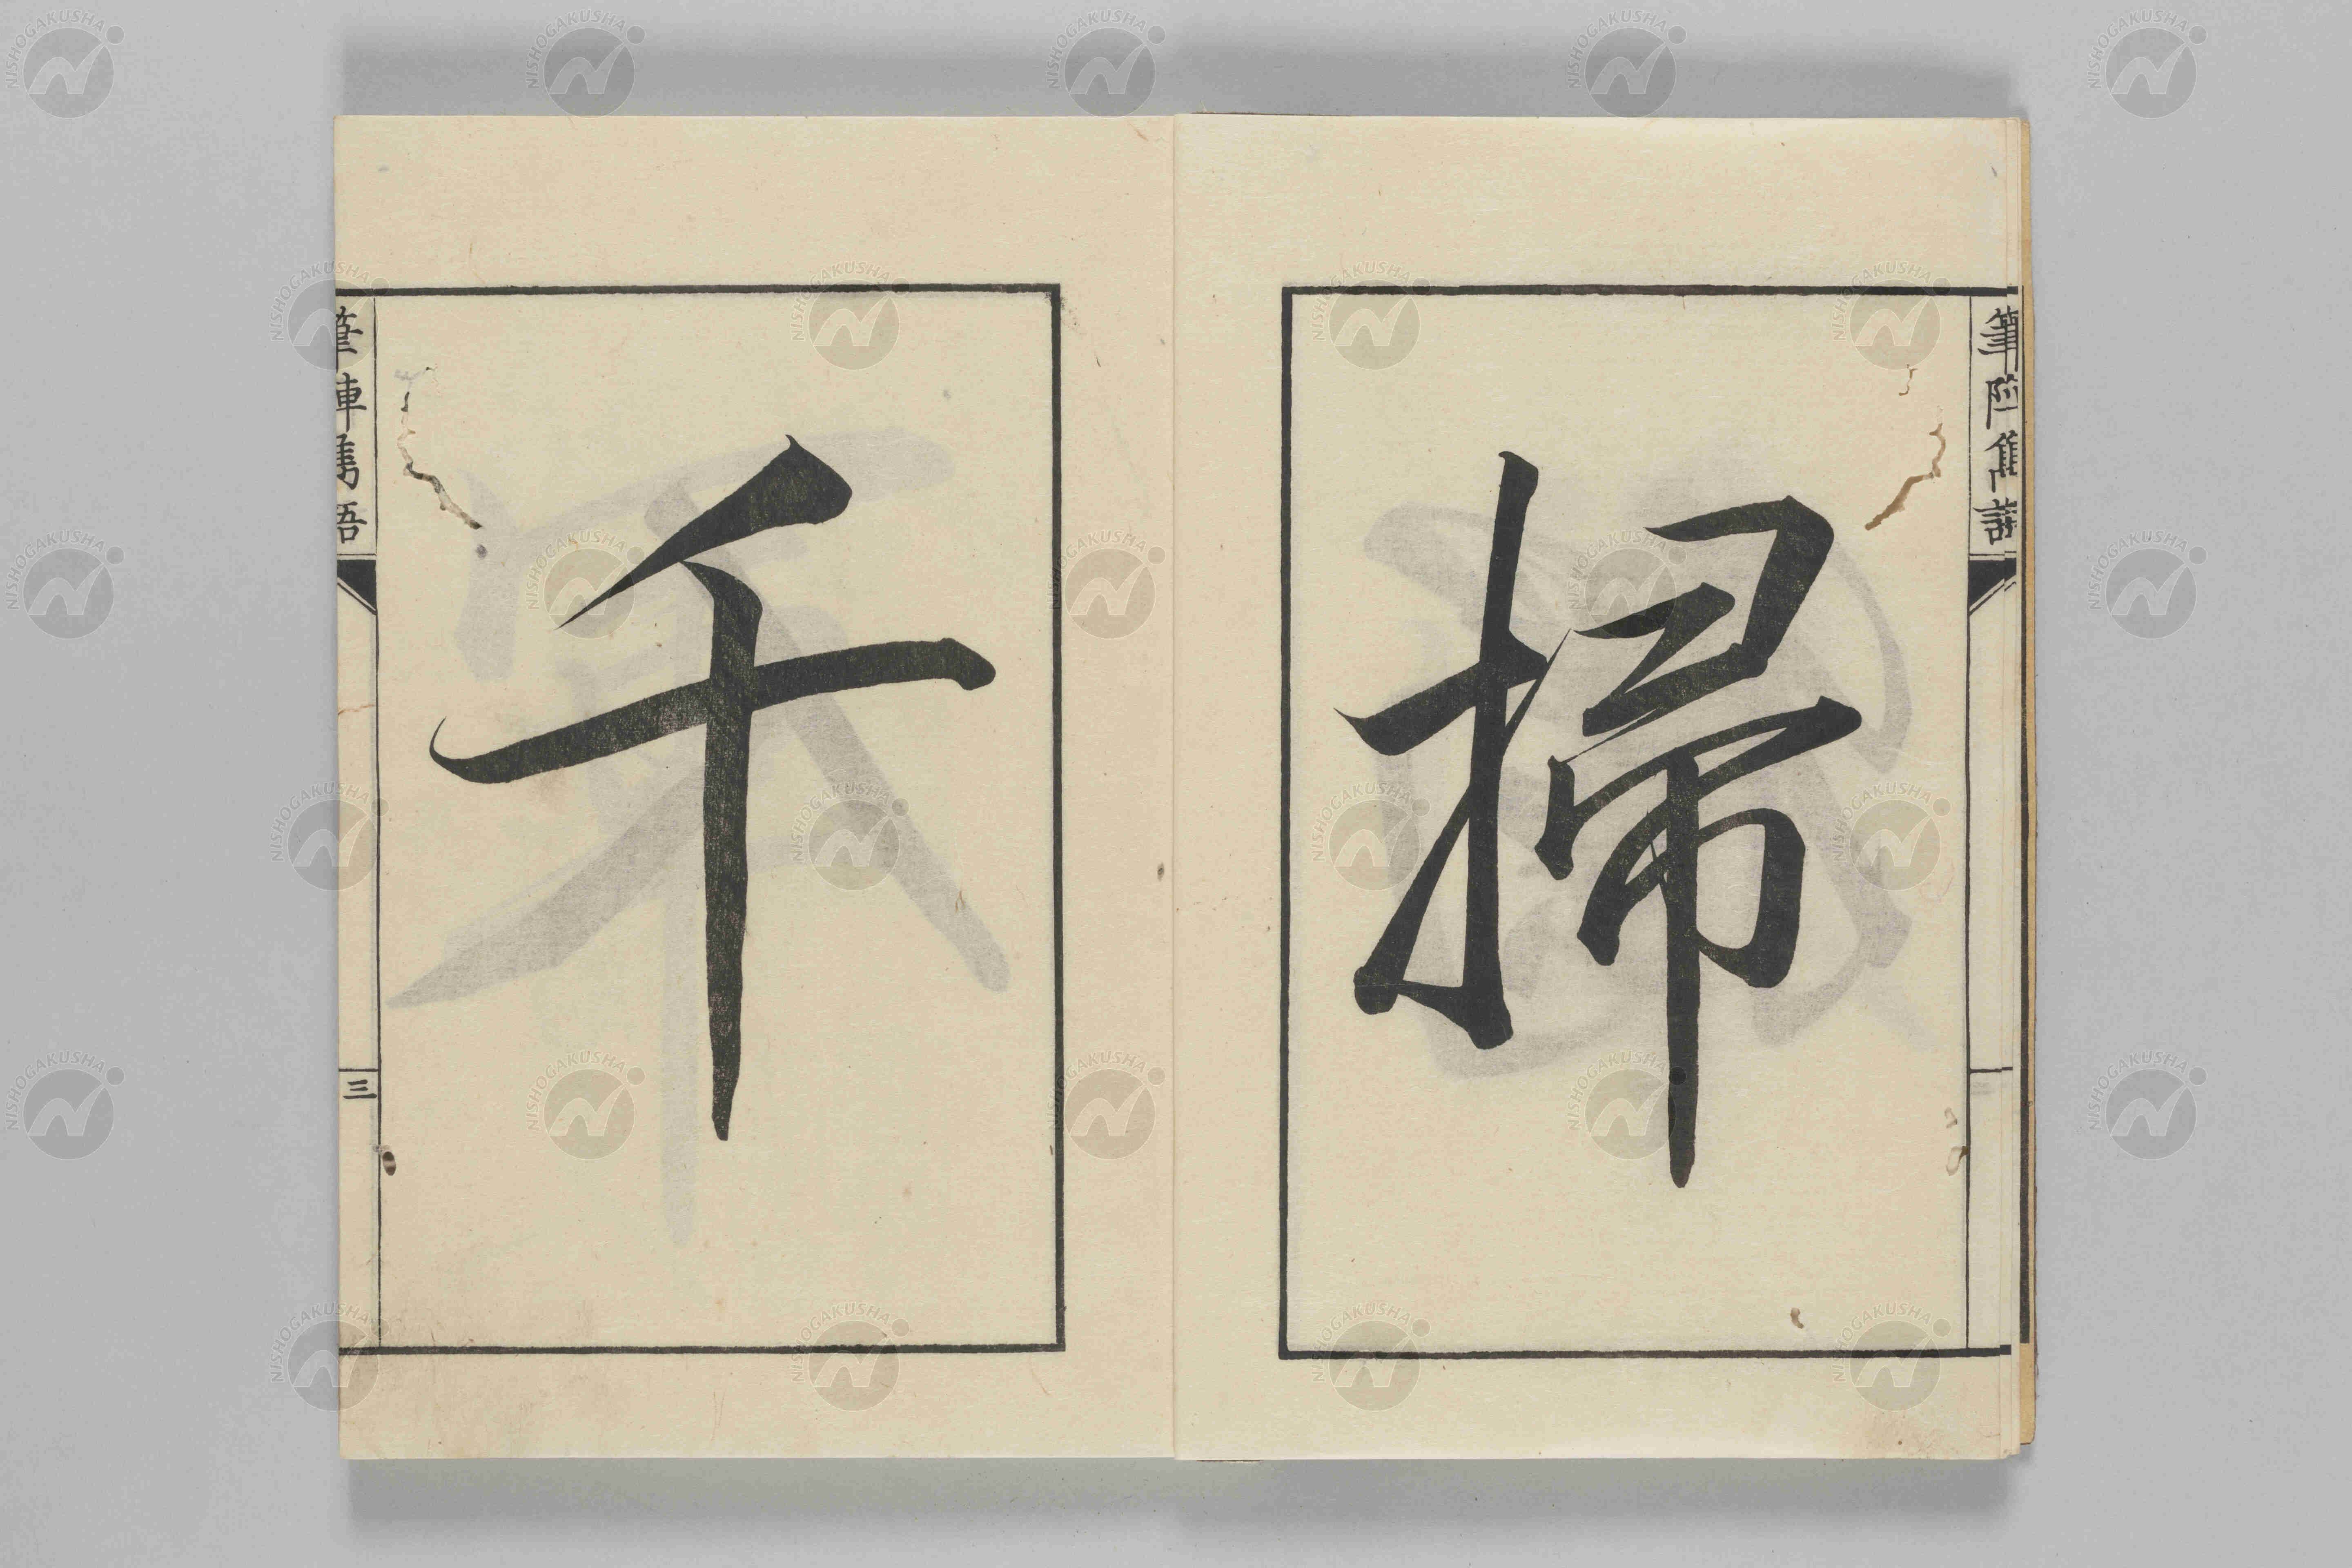 筆陣雋語
掃
千
筆陣雋語
三
NISHOGAKUSHA